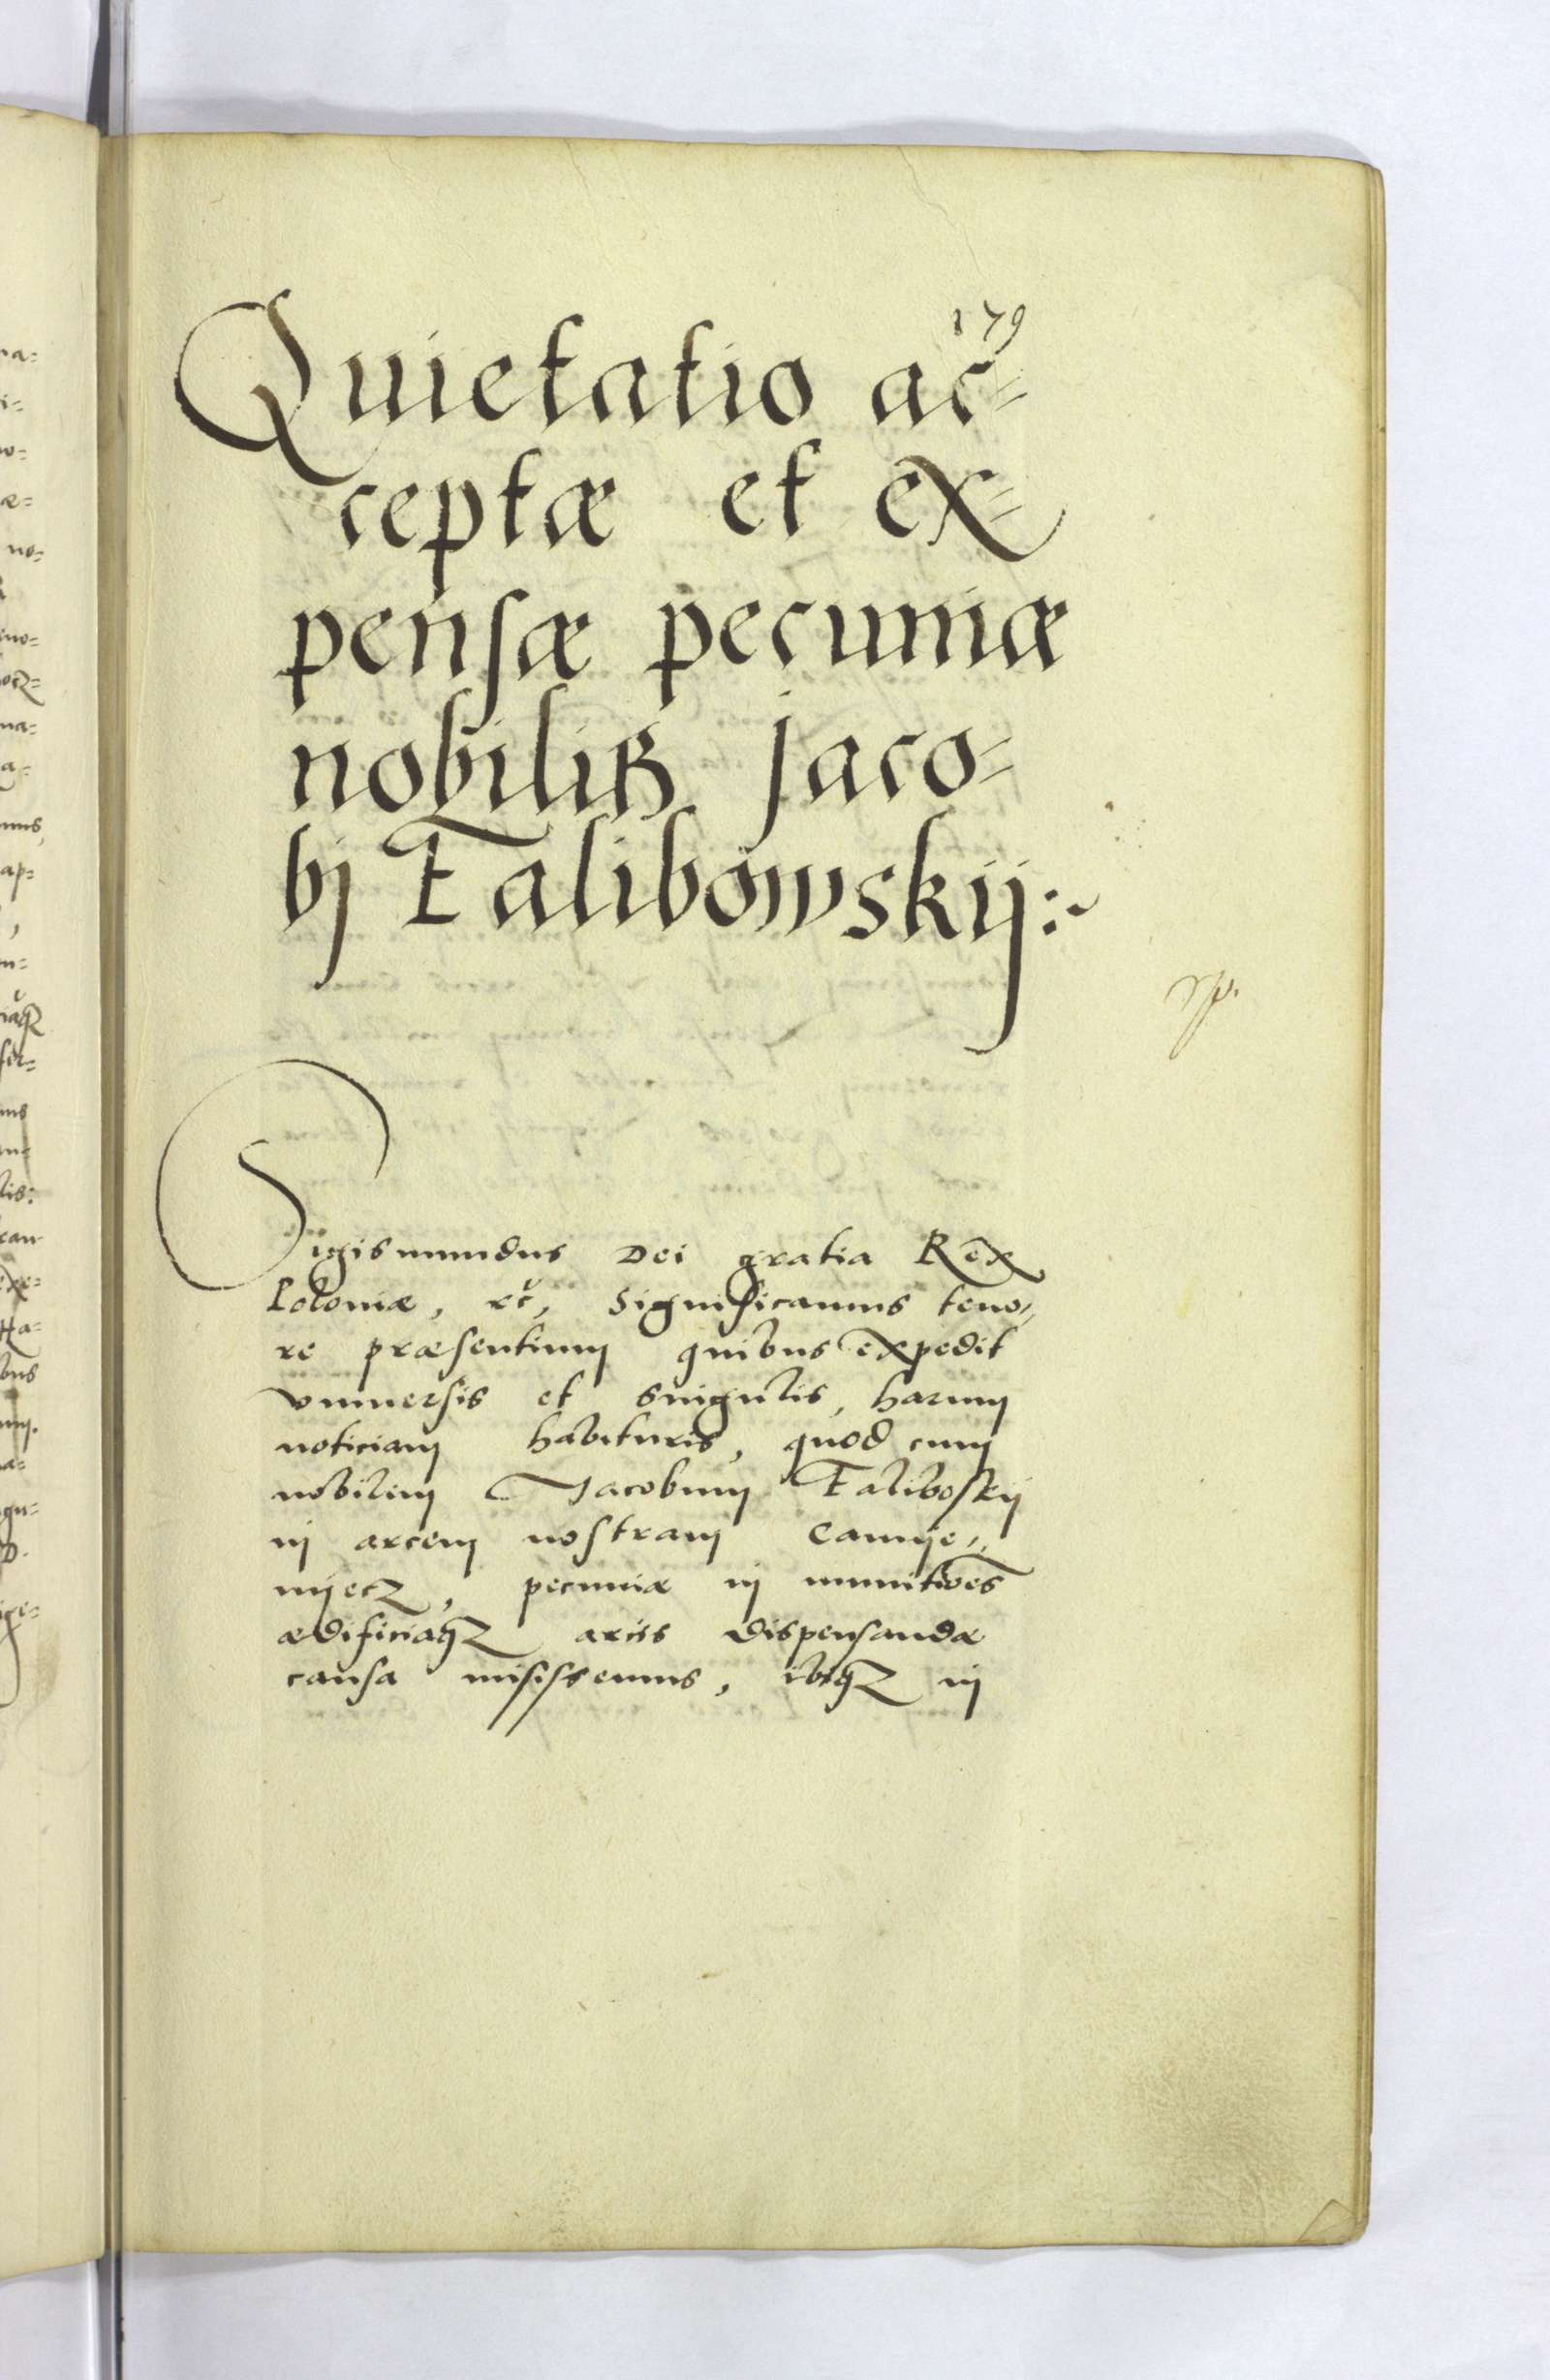 179
Quietatio ac=
ceptæ et ex=
pensæ pecuniæ
nobilis Jaco=
bj Falibowskij:~
Sigismundus Dei gratia Rex
Poloniæ, &c, Significamus teno,,
re præsentium quibus expedit
vniuersis et singulis, harum
noticiam habituris, quod cum
nobilem Jacobum Faliboskij
in arcem nostram Camye,,
nyecz, pecuniæ in munitioēs
ædificiaqz arcis dispensandæ
causa misissemus, ibiqz in